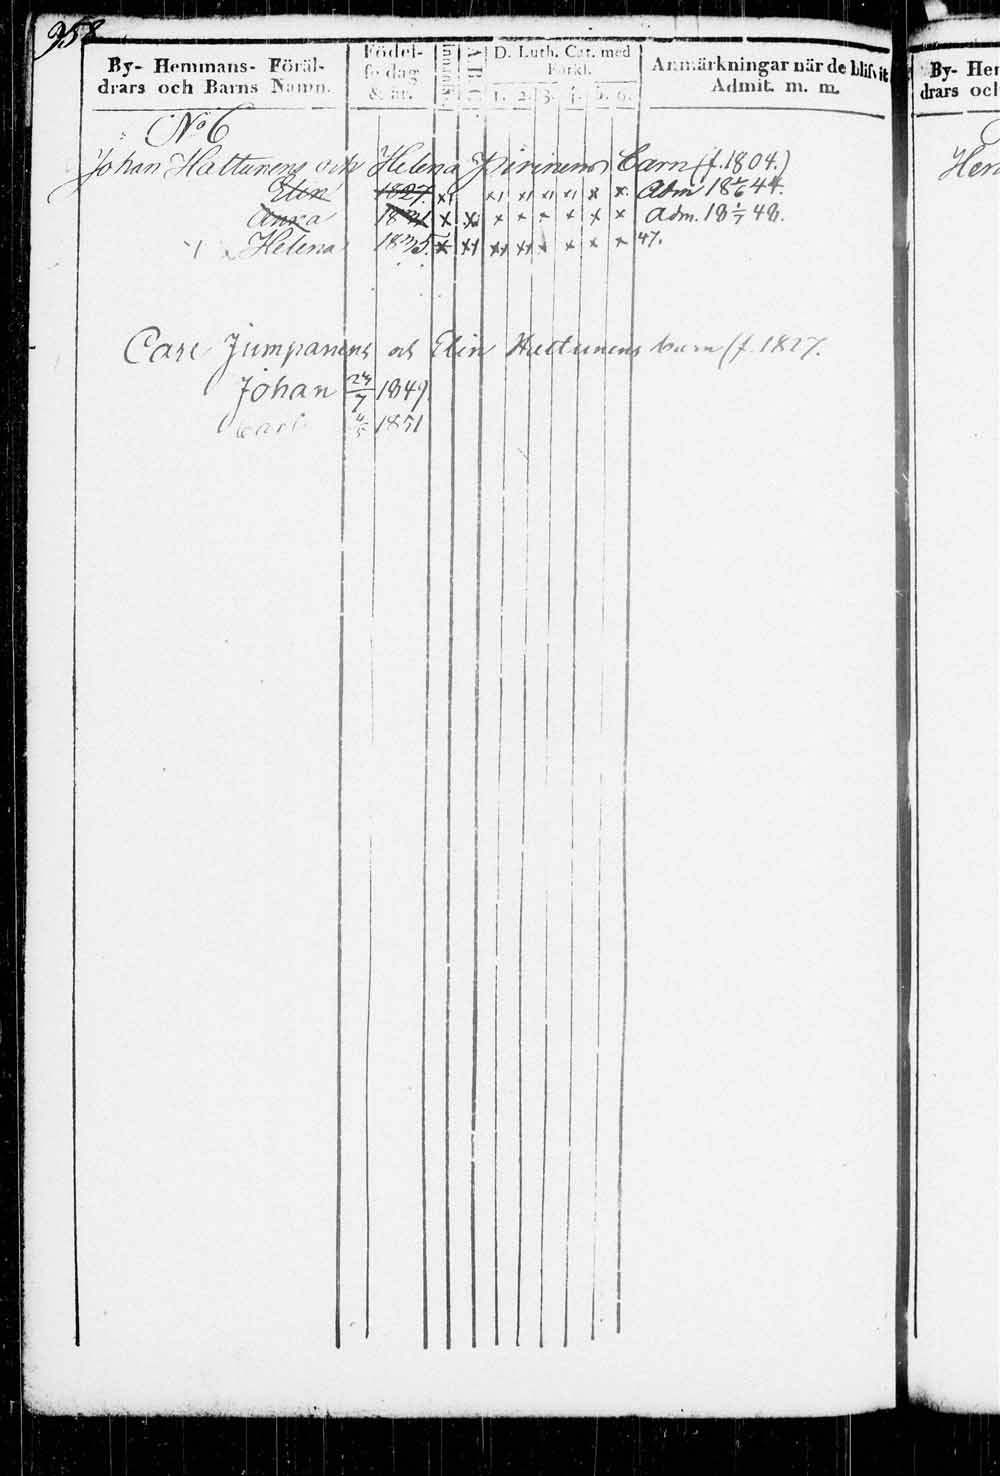 958
By- Hemmans- Föräl-
drars och Barns Namn.
Födel-
sedag
& år.
A B C
D. Luth. Cat. med
Förkl.
1. 2. 3. 4. 5. 6.
Anmärkningar när de blifvit
Admit. m. m.
No 6
Johan Hattunens och Helena Piirinens barn (f. 1804.)
Elin 1827. Adm 18 4/6 44.
Anna 1831 Adm. 18 1/7 48.
Helena 1835. 47.
Carl Jumpanens och Elin Hattunens barn (f. 1827.
Johan 23/7 1849.
Carl 4/5 1851
By- Hem
drars och